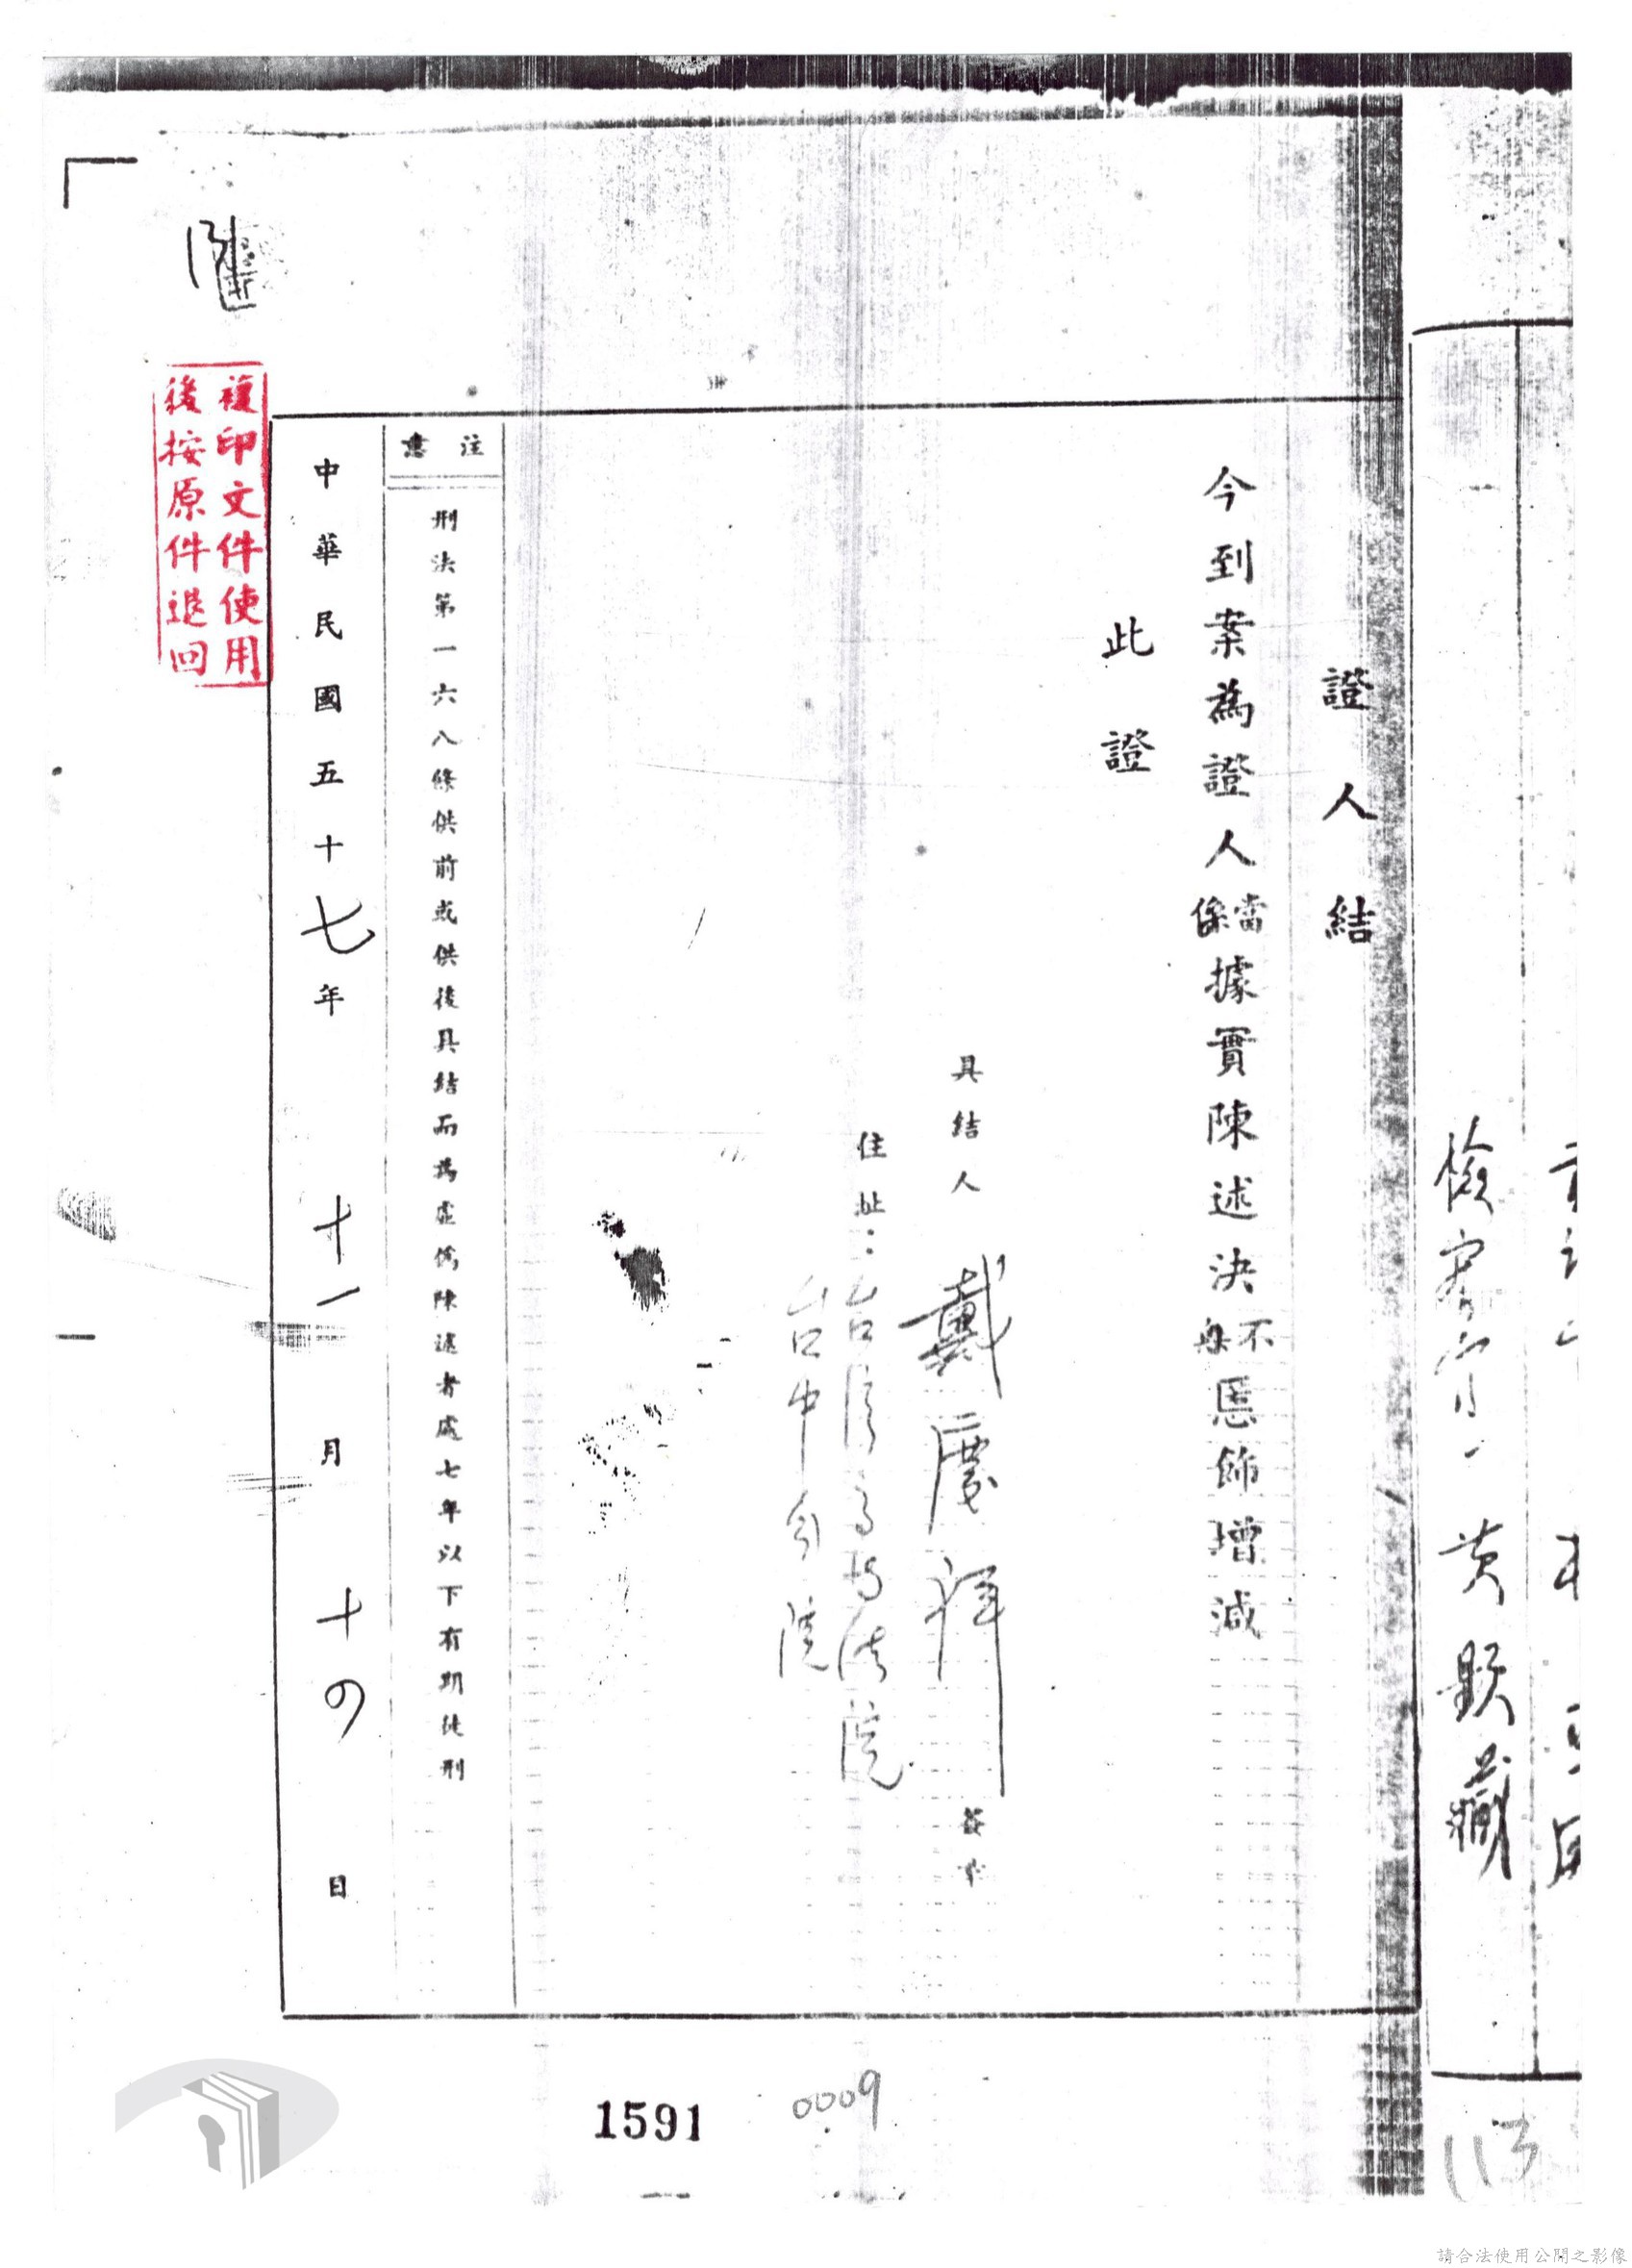 檢察官 黃顯藏
證人結
今到案為證人當係據實陳述決不無匿飾增減
此證
具結人 戴慶祥 簽章
住址：台灣高等法院
台中分院
注意
刑法第一六八條供前或供後具結而為虛偽陳述者處七年以下有期徒刑
中華民國五十七年 十一月 十四日
複印文件使用
後按原件退回
1591
0009
113
請合法使用公開之影像